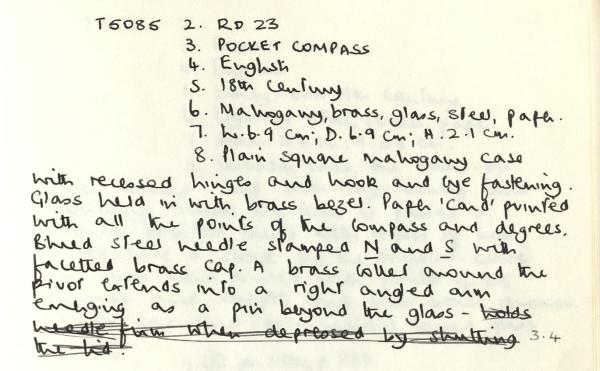 T5085 2. RD 23
3. POCKET COMPASS
4. English
5. 18th Century
6. Mahogany, brass, glass, steel, paper.
7. W. 6.9 cm; D. 6.9 cm; H. 2.1 cm.
8. Plain square mahogany case
with recessed hinges and hook and eye fastening.
Glass held in with brass bezel. Paper 'Card' printed
with all the points of the compass and degrees.
Blued steel needle stamped N and S with
facetted brass cap. A brass collar around the
pivot extends into a right angled arm
emerging as a pin beyond the glass - holds
needle firm when depressed by shutting 3.4
the lid.